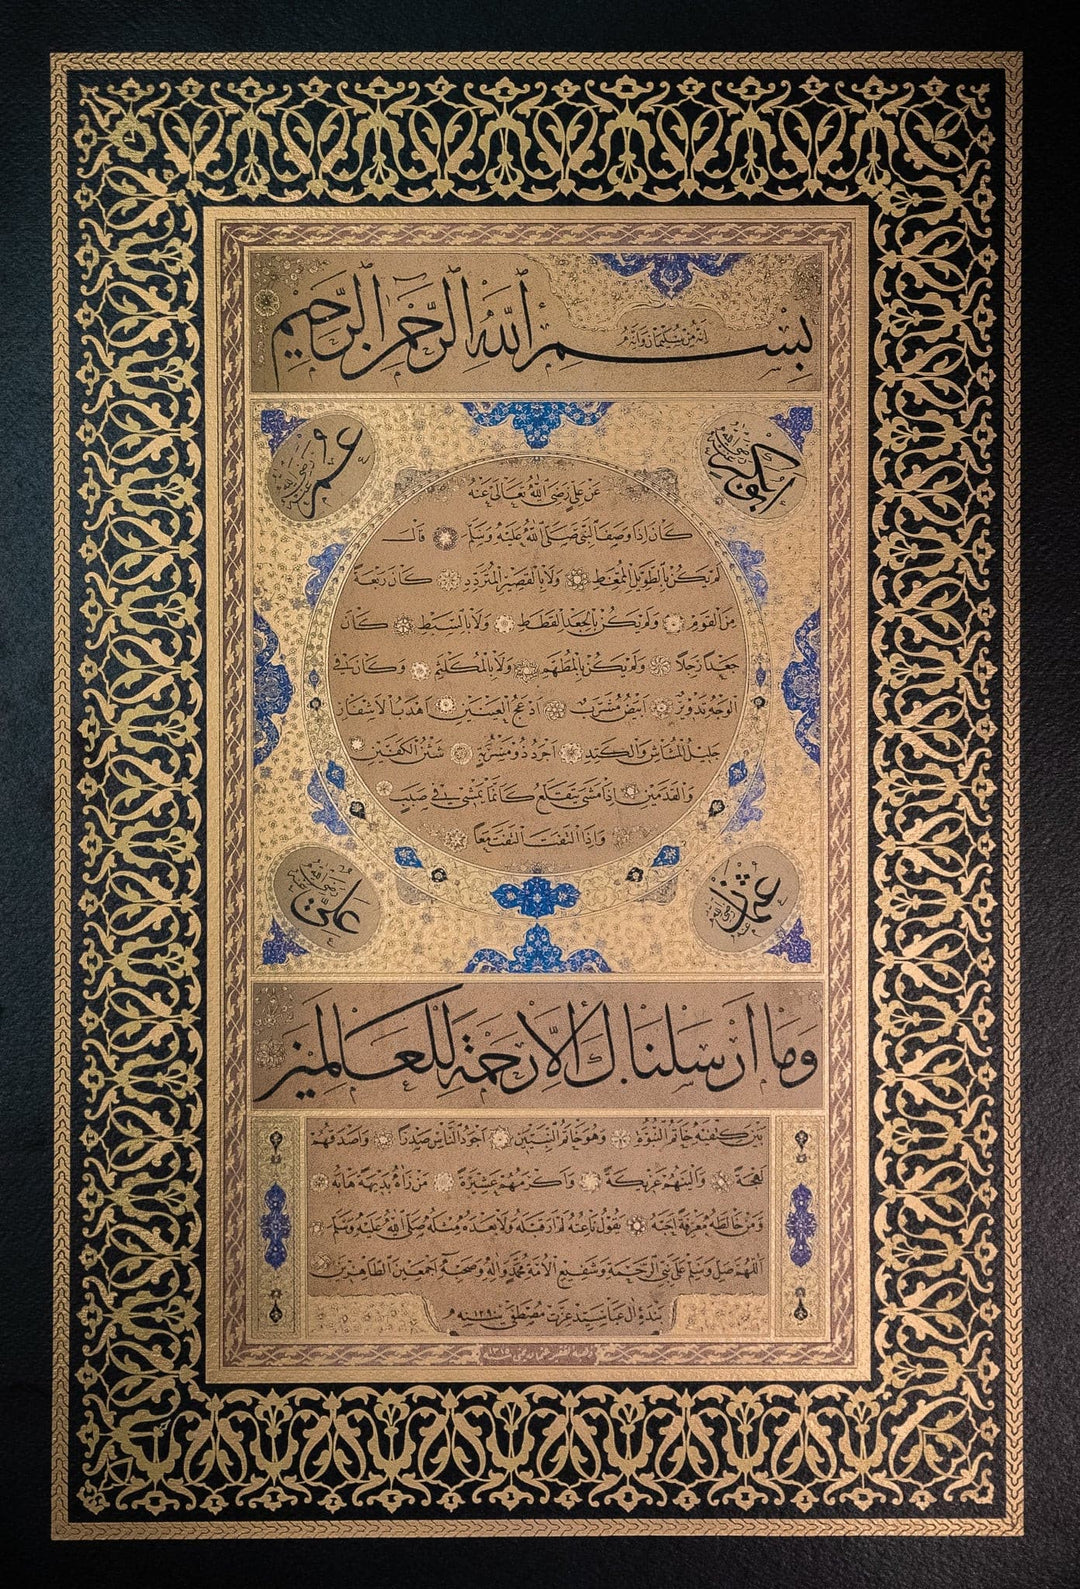 بِسْمِ ٱللهِ الرَّحْمٰنِ الرَّحِيْمِ
إنه من سليمان وإنه
أبو بكر رضي الله عنه
عمر رضي الله عنه
عن علي رضى الله تعالى عنه
كان اذا وصف النبي صلى الله عليه وسلم قال
لم يكن بالطويل الممغط ولا بالقصير المتردد كان ربعة
من القوم ولم يكن بالجعد القطط ولا بالسبط كان
جعدا رجلا ولم يكن بالمطهم ولا بالمكلثم وكان في
الوجه تدوير ابيض مشرب ادعج العينين اهدب الاشفار
جليل المشاش والكتد اجرد ذو مسربة شثن الكفين
والقدمين اذا مشى يتقلع كانما يمشي في صبب
واذا التفت التفت معا
عثمان رضي الله عنه
علي رضي الله عنه
وما ارسلناك الا رحمة للعالمين
بين كتفيه خاتم النبوة وهو خاتم النبيين اجود الناس صدرا واصدقهم
لهجة والينهم عريكة واكرمهم عشيرة من رآه بديهة هابه
ومن خالطه معرفة احبه يقول ناعته لم ار قبله ولا بعده مثله صلى الله عليه وسلم
اللهم صل وسلم على نبي الرحمة وشفيع الامة محمد وآله وصحبه اجمعين الطاهرين
بنده آل عبا سيد عزت مصطفى سنه ١٢٩٠
١٣١٥